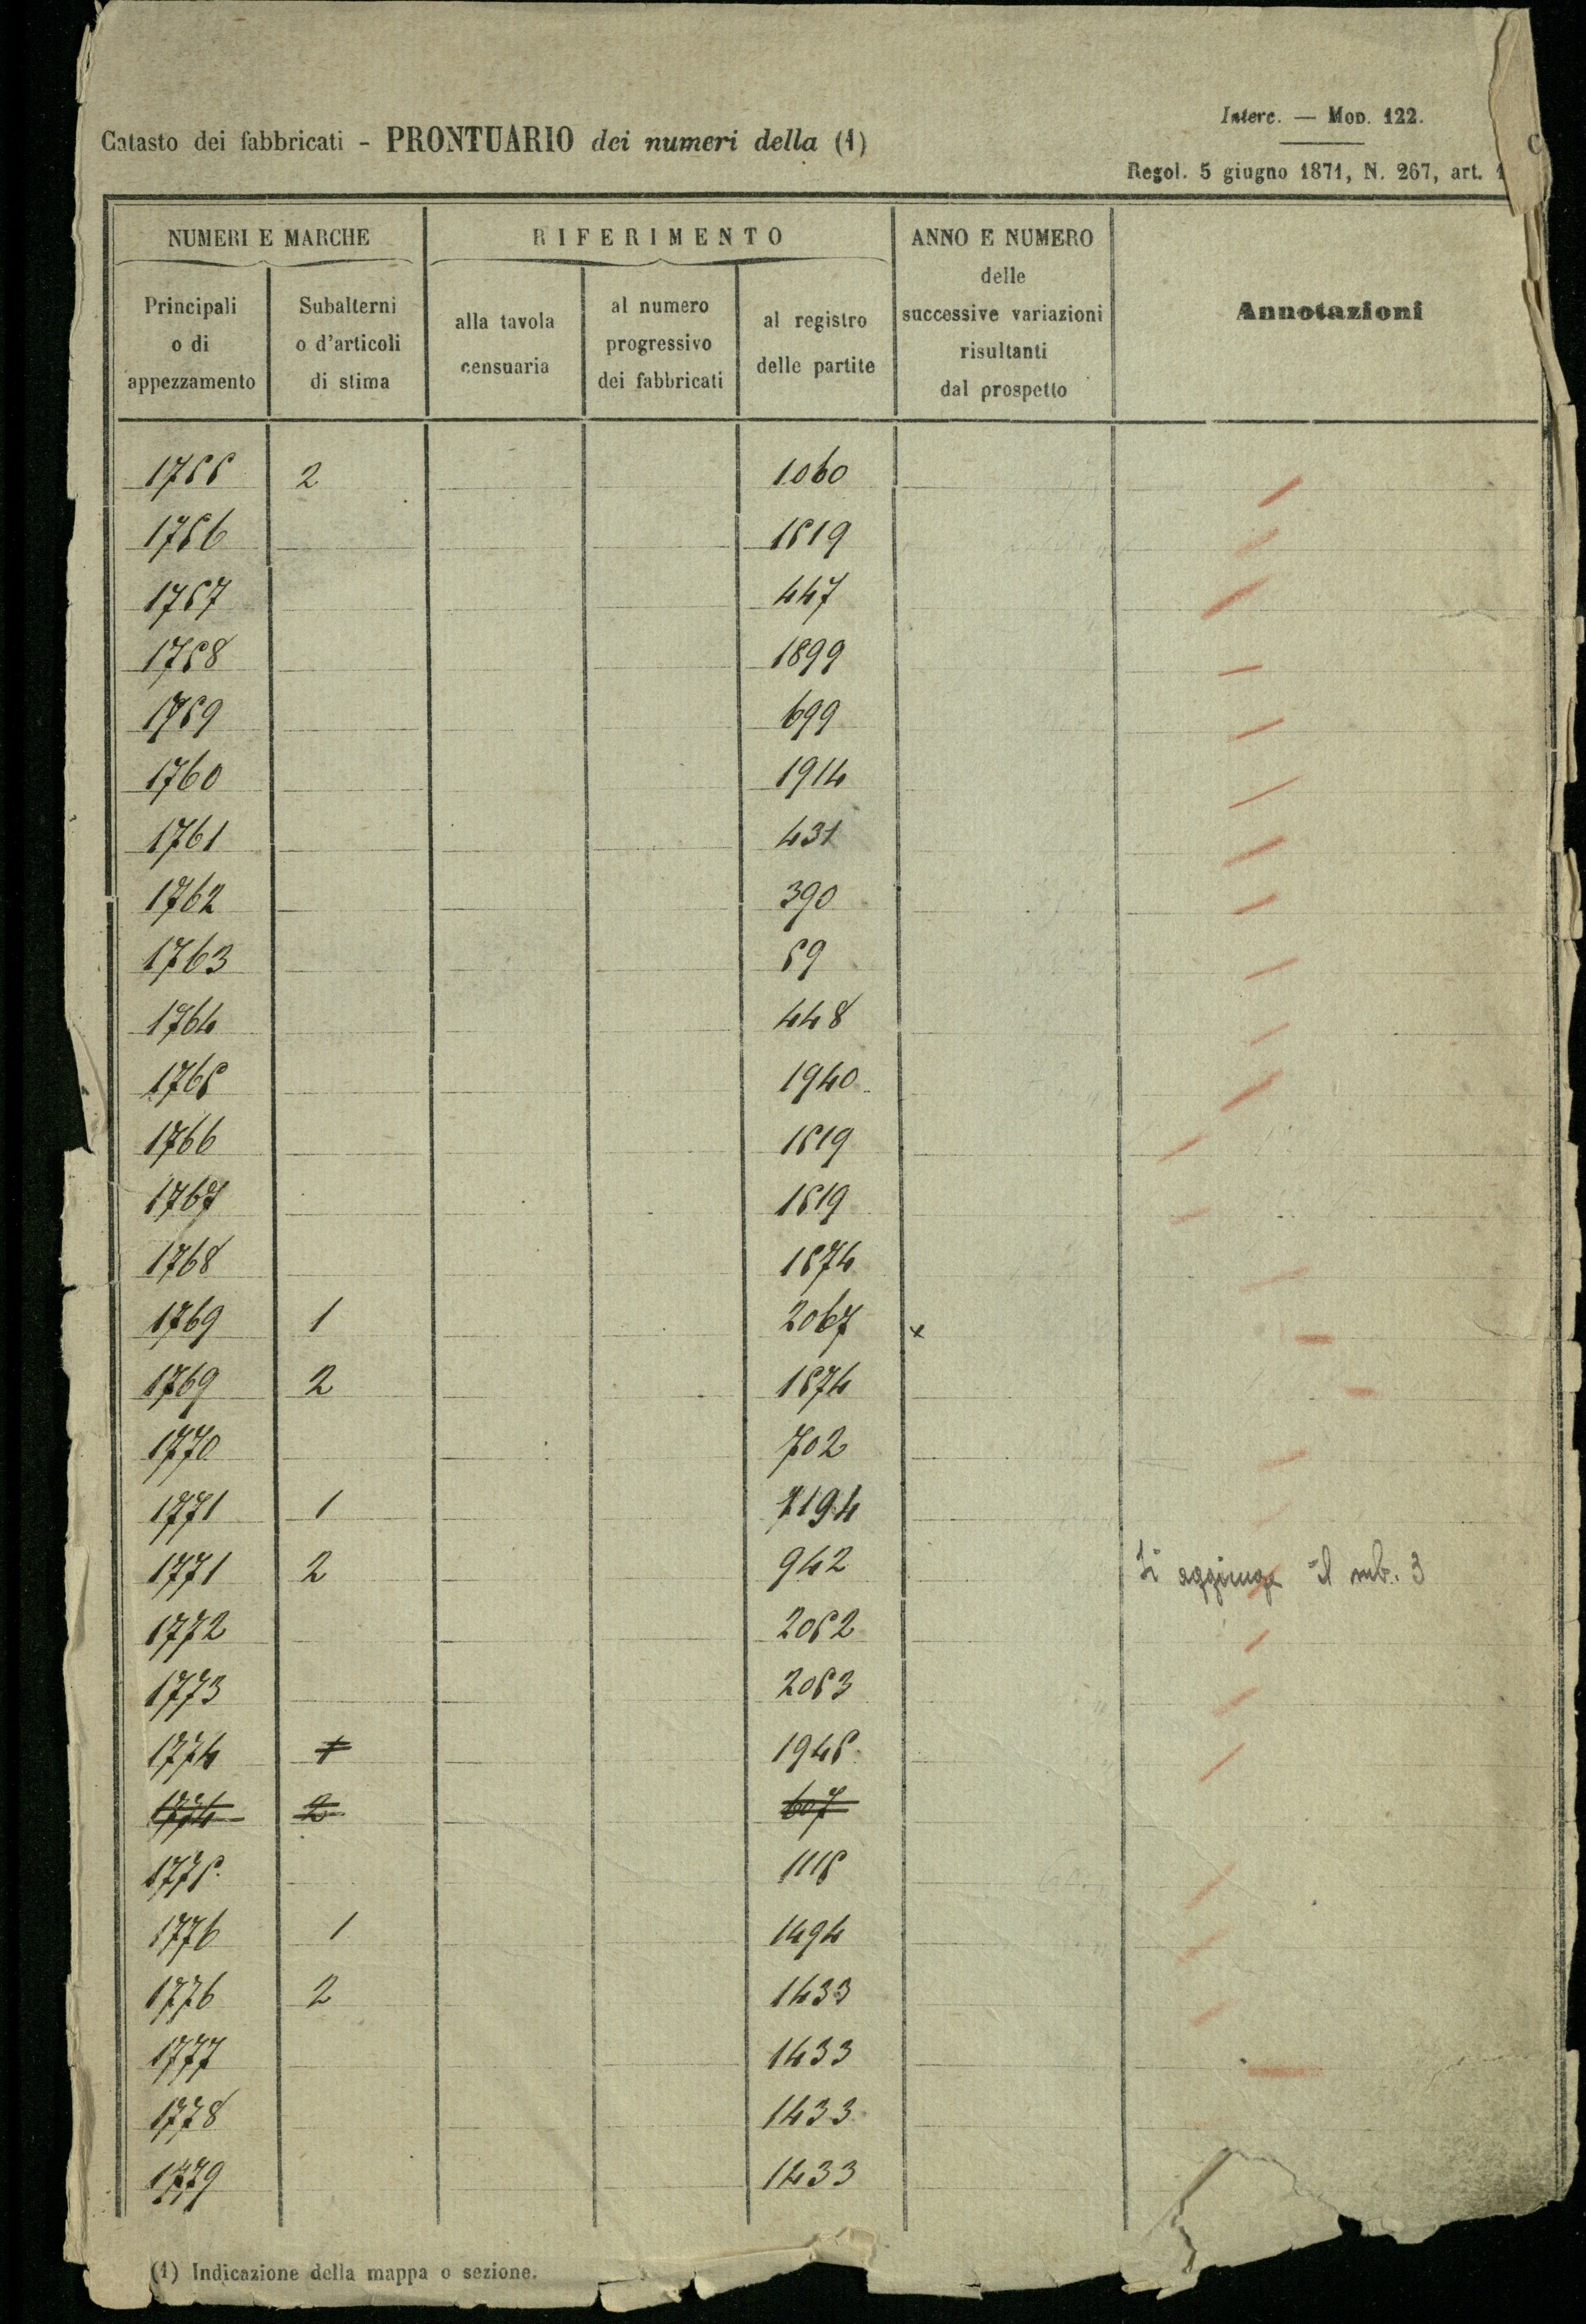 Interc. — Mod. 122.
Catasto dei fabbricati - PRONTUARIO dei numeri della (1)
Regol. 5 giugno 1871, N. 267, art. 1
NUMERI E MARCHE RIFERIMENTO ANNO E NUMERO delle successive variazioni risultanti dal prospetto Annotazioni
Principali o di appezzamento Subalterni o d'articoli di stima alla tavola censuaria al numero progressivo dei fabbricati al registro delle partite
1755 2 1060
1756 1519
1757 447
1758 1899
1759 699
1760 1914
1761 431
1762 390
1763 59
1764 448
1765 1940
1766 1519
1767 1519
1768 1574
1769 1 2067 x
1769 2 1574
1770 702
1771 1 1194
1771 2 942 Si aggiunge il sub. 3
1772 2052
1773 2053
1774 1 1945
1774 2 607
1775 1115
1776 1 1494
1776 2 1433
1777 1433
1778 1433
1779 1433
(1) Indicazione della mappa o sezione.